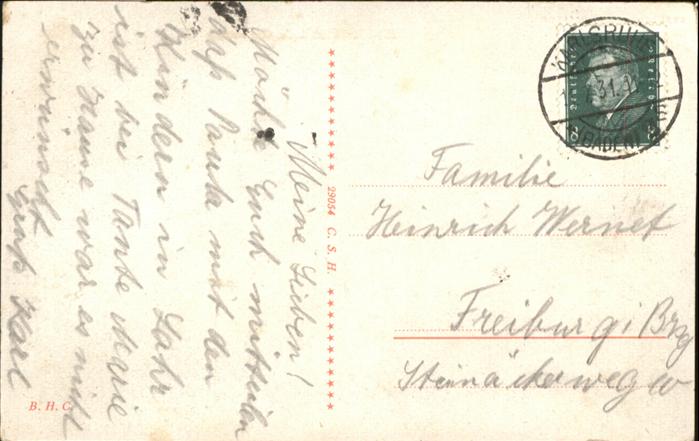 Meine Lieben!
Möchte Euch mitteilen
daß Paula mit den
Kindern in Lahr
ist bei Tante Marie
zu Hause war es nicht
erwünscht
Gruß Karl
29054 C. S. H.
B. H. C.
KARLSRUHE
31.
(BADEN)
Deutsches Reich
8
Familie
Heinrich Wernet
Freiburg i Brg
Steinäckerweg